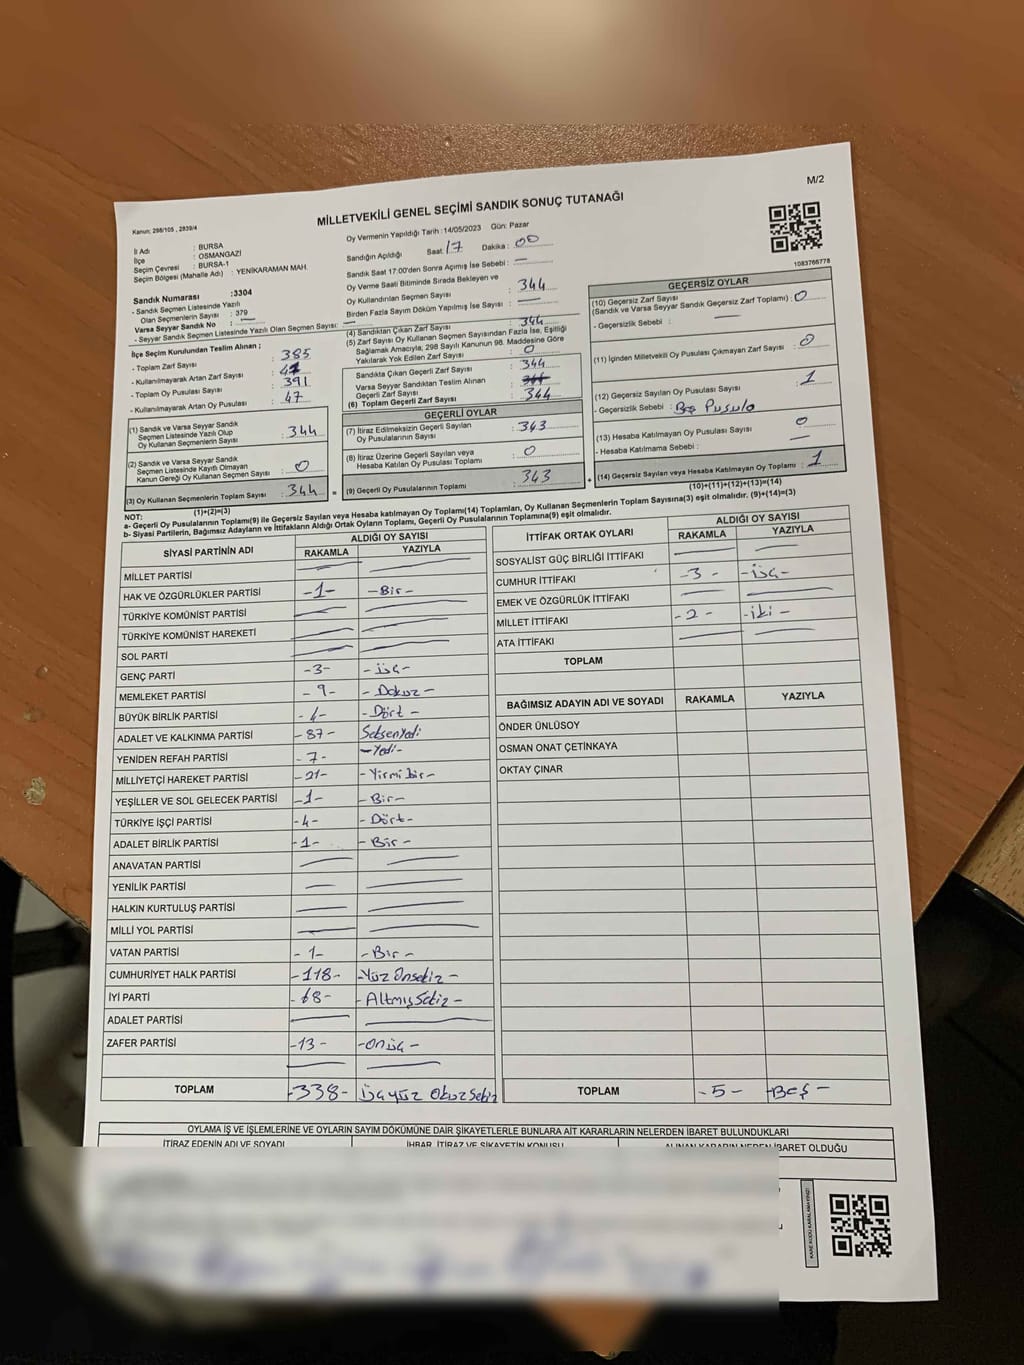 M/2
MİLLETVEKİLİ GENEL SEÇİMİ SANDIK SONUÇ TUTANAĞI
Kanun; 298/105 , 2839/4
İl Adı : BURSA
İlçe : OSMANGAZİ
Seçim Çevresi : BURSA-1
Seçim Bölgesi (Mahalle Adı) : YENİKARAMAN MAH.
Oy Vermenin Yapıldığı Tarih :14/05/2023 Gün: Pazar
Sandığın Açıldığı Saat: 17 Dakika : 00
Sandık Saat 17:00'den Sonra Açılmış İse Sebebi : —
Oy Verme Saati Bitiminde Sırada Bekleyen ve
Oy Kullandırılan Seçmen Sayısı : 344
Birden Fazla Sayım Döküm Yapılmış İse Sayısı : —
1083766778
Sandık Numarası :3304
- Sandık Seçmen Listesinde Yazılı
Olan Seçmenlerin Sayısı : 379
Varsa Seyyar Sandık No : —
- Seyyar Sandık Seçmen Listesinde Yazılı Olan Seçmen Sayısı: —
İlçe Seçim Kurulundan Teslim Alınan ;
- Toplam Zarf Sayısı : 385
- Kullanılmayarak Artan Zarf Sayısı : 41
- Toplam Oy Pusulası Sayısı : 391
- Kullanılmayarak Artan Oy Pusulası : 47
(1) Sandık ve Varsa Seyyar Sandık
Seçmen Listesinde Yazılı Olup
Oy Kullanan Seçmenlerin Sayısı : 344
(2) Sandık ve Varsa Seyyar Sandık
Seçmen Listesinde Kayıtlı Olmayan
Kanun Gereği Oy Kullanan Seçmen Sayısı : 0
(3) Oy Kullanan Seçmenlerin Toplam Sayısı : 344 =
(1)+(2)=(3)
(4) Sandıktan Çıkan Zarf Sayısı : 344
(5) Zarf Sayısı Oy Kullanan Seçmen Sayısından Fazla İse, Eşitliği
Sağlamak Amacıyla; 298 Sayılı Kanunun 98. Maddesine Göre
Yakılarak Yok Edilen Zarf Sayısı : 0
Sandıkta Çıkan Geçerli Zarf Sayısı : 344
Varsa Seyyar Sandıktan Teslim Alınan
Geçerli Zarf Sayısı : 344
(6) Toplam Geçerli Zarf Sayısı : 344
GEÇERLİ OYLAR
(7) İtiraz Edilmeksizin Geçerli Sayılan
Oy Pusulalarının Sayısı : 343
(8) İtiraz Üzerine Geçerli Sayılan veya
Hesaba Katılan Oy Pusulası Toplamı : 0
(9) Geçerli Oy Pusulalarının Toplamı : 343 +
GEÇERSİZ OYLAR
(10) Geçersiz Zarf Sayısı
(Sandık ve Varsa Seyyar Sandık Geçersiz Zarf Toplamı) : 0
- Geçersizlik Sebebi : —
(11) İçinden Milletvekili Oy Pusulası Çıkmayan Zarf Sayısı : 0
(12) Geçersiz Sayılan Oy Pusulası Sayısı : 1
- Geçersizlik Sebebi : Boş Pusula
(13) Hesaba Katılmayan Oy Pusulası Sayısı : 0
- Hesaba Katılmama Sebebi : —
(14) Geçersiz Sayılan veya Hesaba Katılmayan Oy Toplamı : 1
(10)+(11)+(12)+(13)=(14)
NOT:
a- Geçerli Oy Pusulalarının Toplamı(9) ile Geçersiz Sayılan veya Hesaba Katılmayan Oy Toplamı(14) Toplamları, Oy Kullanan Seçmenlerin Toplam Sayısına(3) eşit olmalıdır. (9)+(14)=(3)
b- Siyasi Partilerin, Bağımsız Adayların ve İttifakların Aldığı Ortak Oyların Toplamı, Geçerli Oy Pusulalarının Toplamına(9) eşit olmalıdır.
SİYASİ PARTİNİN ADI ALDIĞI OY SAYISI
RAKAMLA YAZIYLA
MİLLET PARTİSİ
HAK VE ÖZGÜRLÜKLER PARTİSİ -1- -Bir-
TÜRKİYE KOMÜNİST PARTİSİ
TÜRKİYE KOMÜNİST HAREKETİ
SOL PARTİ
GENÇ PARTİ -3- -üç-
MEMLEKET PARTİSİ -9- -Dokuz-
BÜYÜK BİRLİK PARTİSİ -4- -Dört-
ADALET VE KALKINMA PARTİSİ -87- SeksenYedi
YENİDEN REFAH PARTİSİ -7- -Yedi-
MİLLİYETÇİ HAREKET PARTİSİ -21- -Yirmi bir-
YEŞİLLER VE SOL GELECEK PARTİSİ -1- -Bir-
TÜRKİYE İŞÇİ PARTİSİ -4- -Dört-
ADALET BİRLİK PARTİSİ -1- -Bir-
ANAVATAN PARTİSİ
YENİLİK PARTİSİ
HALKIN KURTULUŞ PARTİSİ
MİLLİ YOL PARTİSİ
VATAN PARTİSİ -1- -Bir-
CUMHURİYET HALK PARTİSİ -118- -Yüz Onsekiz-
İYİ PARTİ -68- -AltmışSekiz-
ADALET PARTİSİ
ZAFER PARTİSİ -13- -Onüç-
TOPLAM -338- üçyüz Otuz Sekiz
İTTİFAK ORTAK OYLARI ALDIĞI OY SAYISI
RAKAMLA YAZIYLA
SOSYALİST GÜÇ BİRLİĞİ İTTİFAKI
CUMHUR İTTİFAKI -3- -üç-
EMEK VE ÖZGÜRLÜK İTTİFAKI
MİLLET İTTİFAKI -2- -iki-
ATA İTTİFAKI
TOPLAM
BAĞIMSIZ ADAYIN ADI VE SOYADI RAKAMLA YAZIYLA
ÖNDER ÜNLÜSOY
OSMAN ONAT ÇETİNKAYA
OKTAY ÇINAR
TOPLAM -5- -BEŞ-
OYLAMA İŞ VE İŞLEMLERİNE VE OYLARIN SAYIM DÖKÜMÜNE DAİR ŞİKAYETLERLE BUNLARA AİT KARARLARIN NELERDEN İBARET BULUNDUKLARI
İTİRAZ EDENİN ADI VE SOYADI İHBAR, İTİRAZ VE ŞİKAYETİN KONUSU ALINAN KARARIN NEDEN İBARET OLDUĞU
KARE KODU KARALAMAYINIZ!